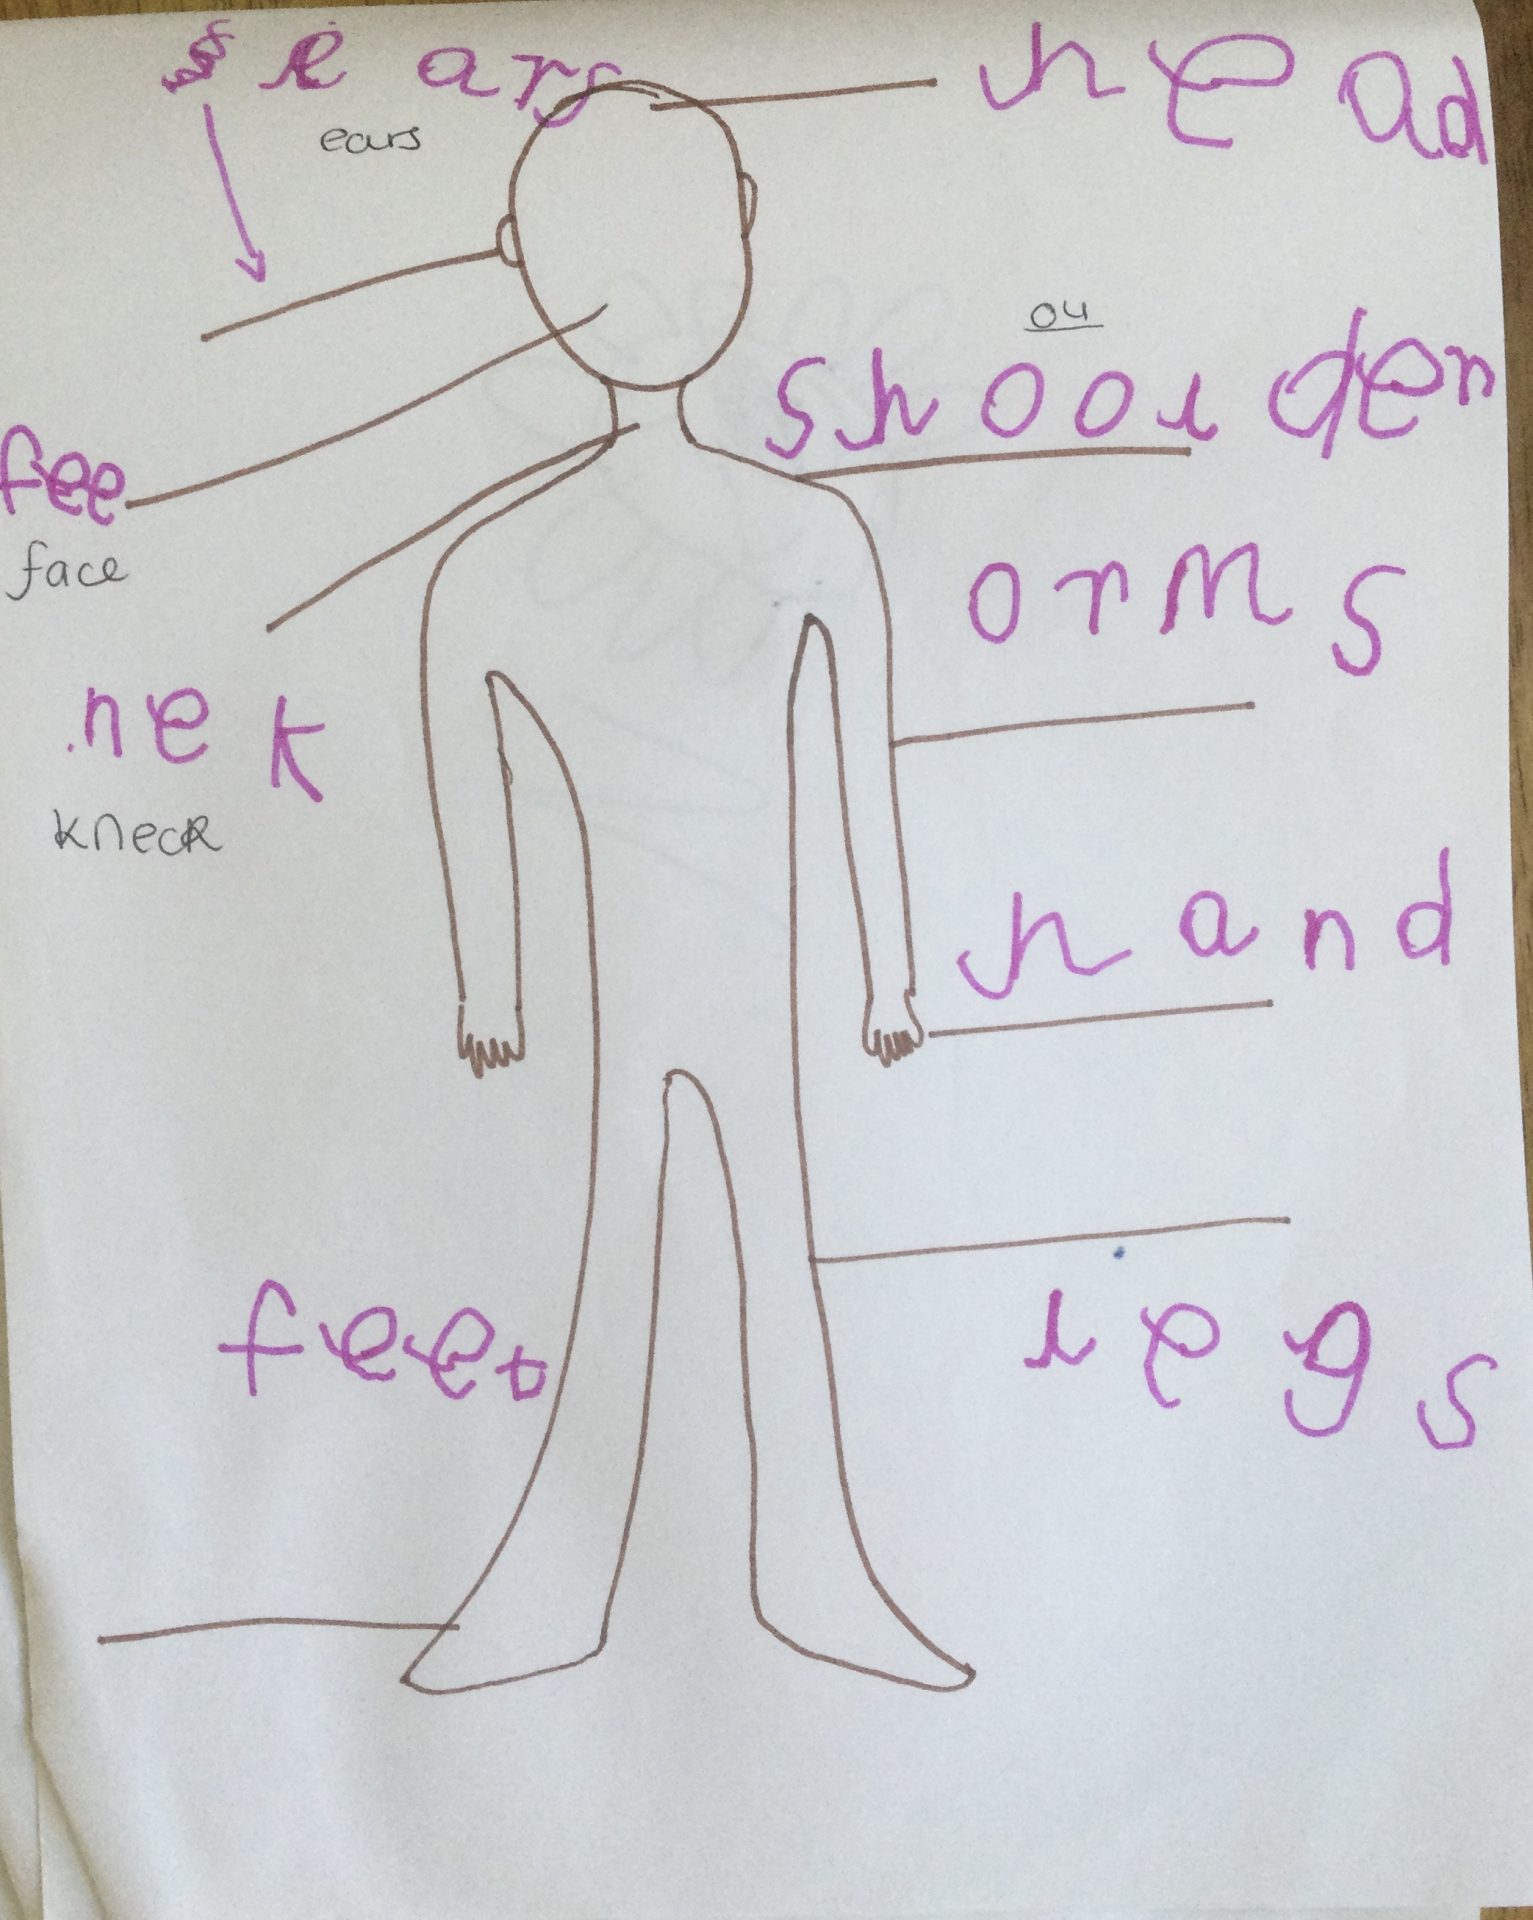 ears
head
ears
ou
shoolder
fee
face
orms
nek
kneck
hand
feet
legs